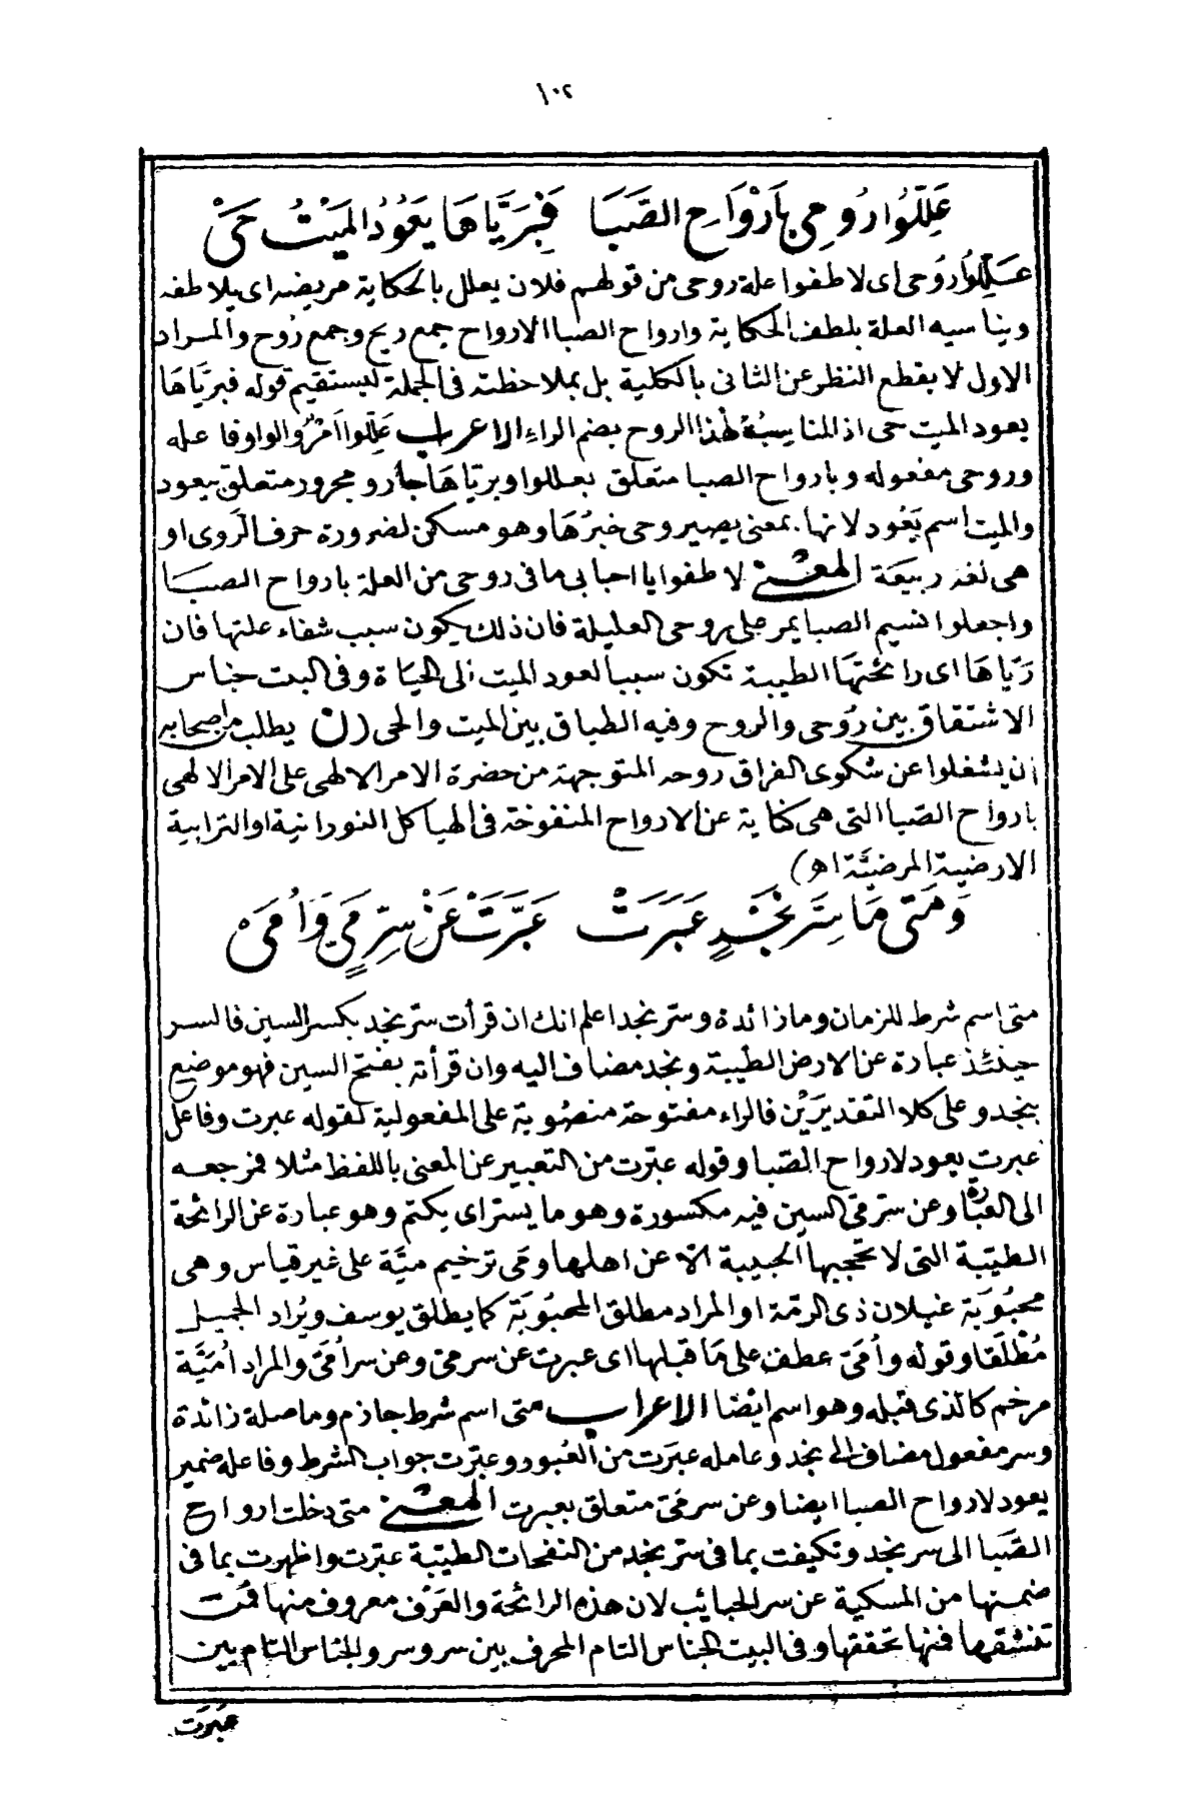 ١٠٢
عَلِّلُوا رُوحِي بِأَرْوَاحِ الصَّبَا فَبِرَيَّاهَا يَعُودُ المَيْتُ حَيْ
عَلِّلُوا رُوحى اى لاطفوا علة روحى من قولهم فلان يعلل بالحكاية مريضه اى يلاطفه
ويناسيه العلة بلطف الحكاية وارواح الصبا الارواح جمع ريح وجمع رُوح والمراد
الاول لا بقطع النظر عن الثانى بالكلية بل بملاحظته فى الجملة ليستقيم قوله فبريَّاهَا
يعود الميت حى اذ المناسِبُ لهذا الروح بضم الراء الاعراب عَلِّلوا اَمْرٌ والواو فاعله
وروحى مفعوله وبارواح الصبا متعلق بعللوا وبريَّاهَا جار ومجرور متعلق بيعود
والميت اسم يَعُود لانها بمعنى يصير وحى خبرُهَا وهو مسكن لضرورة حرف الرَوى او
هى لغة ربيعَة المعنى لاطفوا يا احبابى ما فى روحى من العلة بارواح الصبَا
واجعلوا نسيم الصبا يمر على روحى العليلة فان ذلك يكون سبب شفاء علتها فان
رَيَّاهَا اى رائحتهَا الطيبة تكون سببا لعود الميت الى الحيَاة وفى البيت جناس
الاشتقاق بين رُوحى والروح وفيه الطباق بين الميت والحى (ن) يطلب من اصحابه
ان يشغلوا عن شكوى الفراق روحه المتوجهة من حضرة الامر الالهى على الامر الالهى
بارواح الصَبا التى هى كناية عن الارواح المنفوخة فى الهياكل النورانية او الترابية
الارضية المرضيَّة اه)
وَمَتَى مَا سِرَّ نَجْدٍ عَبَرَتْ عَبَّرَتْ عَنْ سِرِّ مَيٍّ وَأُمَيْ
متى اسم شرط للزمان وما زائدة وسِرّ نجد اعلم انك ان قرأت سرّ نجد بكسر السين فالسر
حينئذ عبارة عن الارض الطيِّبة ونجد مضاف اليه وان قرأته بفتح السين فهو موضع
بنجد وعلى كلا التقديرَيْن فالراء مفتوحة منصُوبة على المفعولية لقوله عبرت وفاعل
عبرت يعود لارواح الصَبا وقوله عبّرت من التعبير عن المعنى باللفظ مثلا فمرجعه
الى العبارة وعن سرّ مَىّ السين فيه مكسورة وهو ما يستر اى يكتم وهو عبارة عن الرائحة
الطيّبة التى لا تحجبها الحبيبة الّا عن اهلها ومَى ترخيم ميَّة على غير قياس وهى
محبُوبَة غيلان ذى الرمّة او المراد مطلق المحبُوبَة كما يطلق يوسف ويُراد الجميل
مُطْلَقا وقوله وأُمَىّ عطف على مَا قبلها اى عبرت عن سر مىّ وعن سر أُمَىّ والمراد أُمَيَّة
مرخم كالذى قبله وهو اسم ايضا الاعراب متى اسم شرط جازم وما صلة زائدة
وسر مفعول مضاف الى نجد وعامله عبَرَت من العُبور وعبّرت جواب الشرط وفاعله ضمير
يعود لارواح الصبا ايضا وعن سر مَىّ متعلق بعبرت المعنى متى دخلت ارواح
الصَبا الى سر نجد وتكيفت بما فى سر نجد من النفحات الطيّبة عبّرت واظهرت بما فى
ضمنها من المسكية عن سر الحبائب لان هذه الرائحة والعَرْف معروف منها فمَن
تنشقها فمنها تحققها وفى البيت الجناس التام المحرف بين سر وسر والجناس التام بين
عَبَرَت